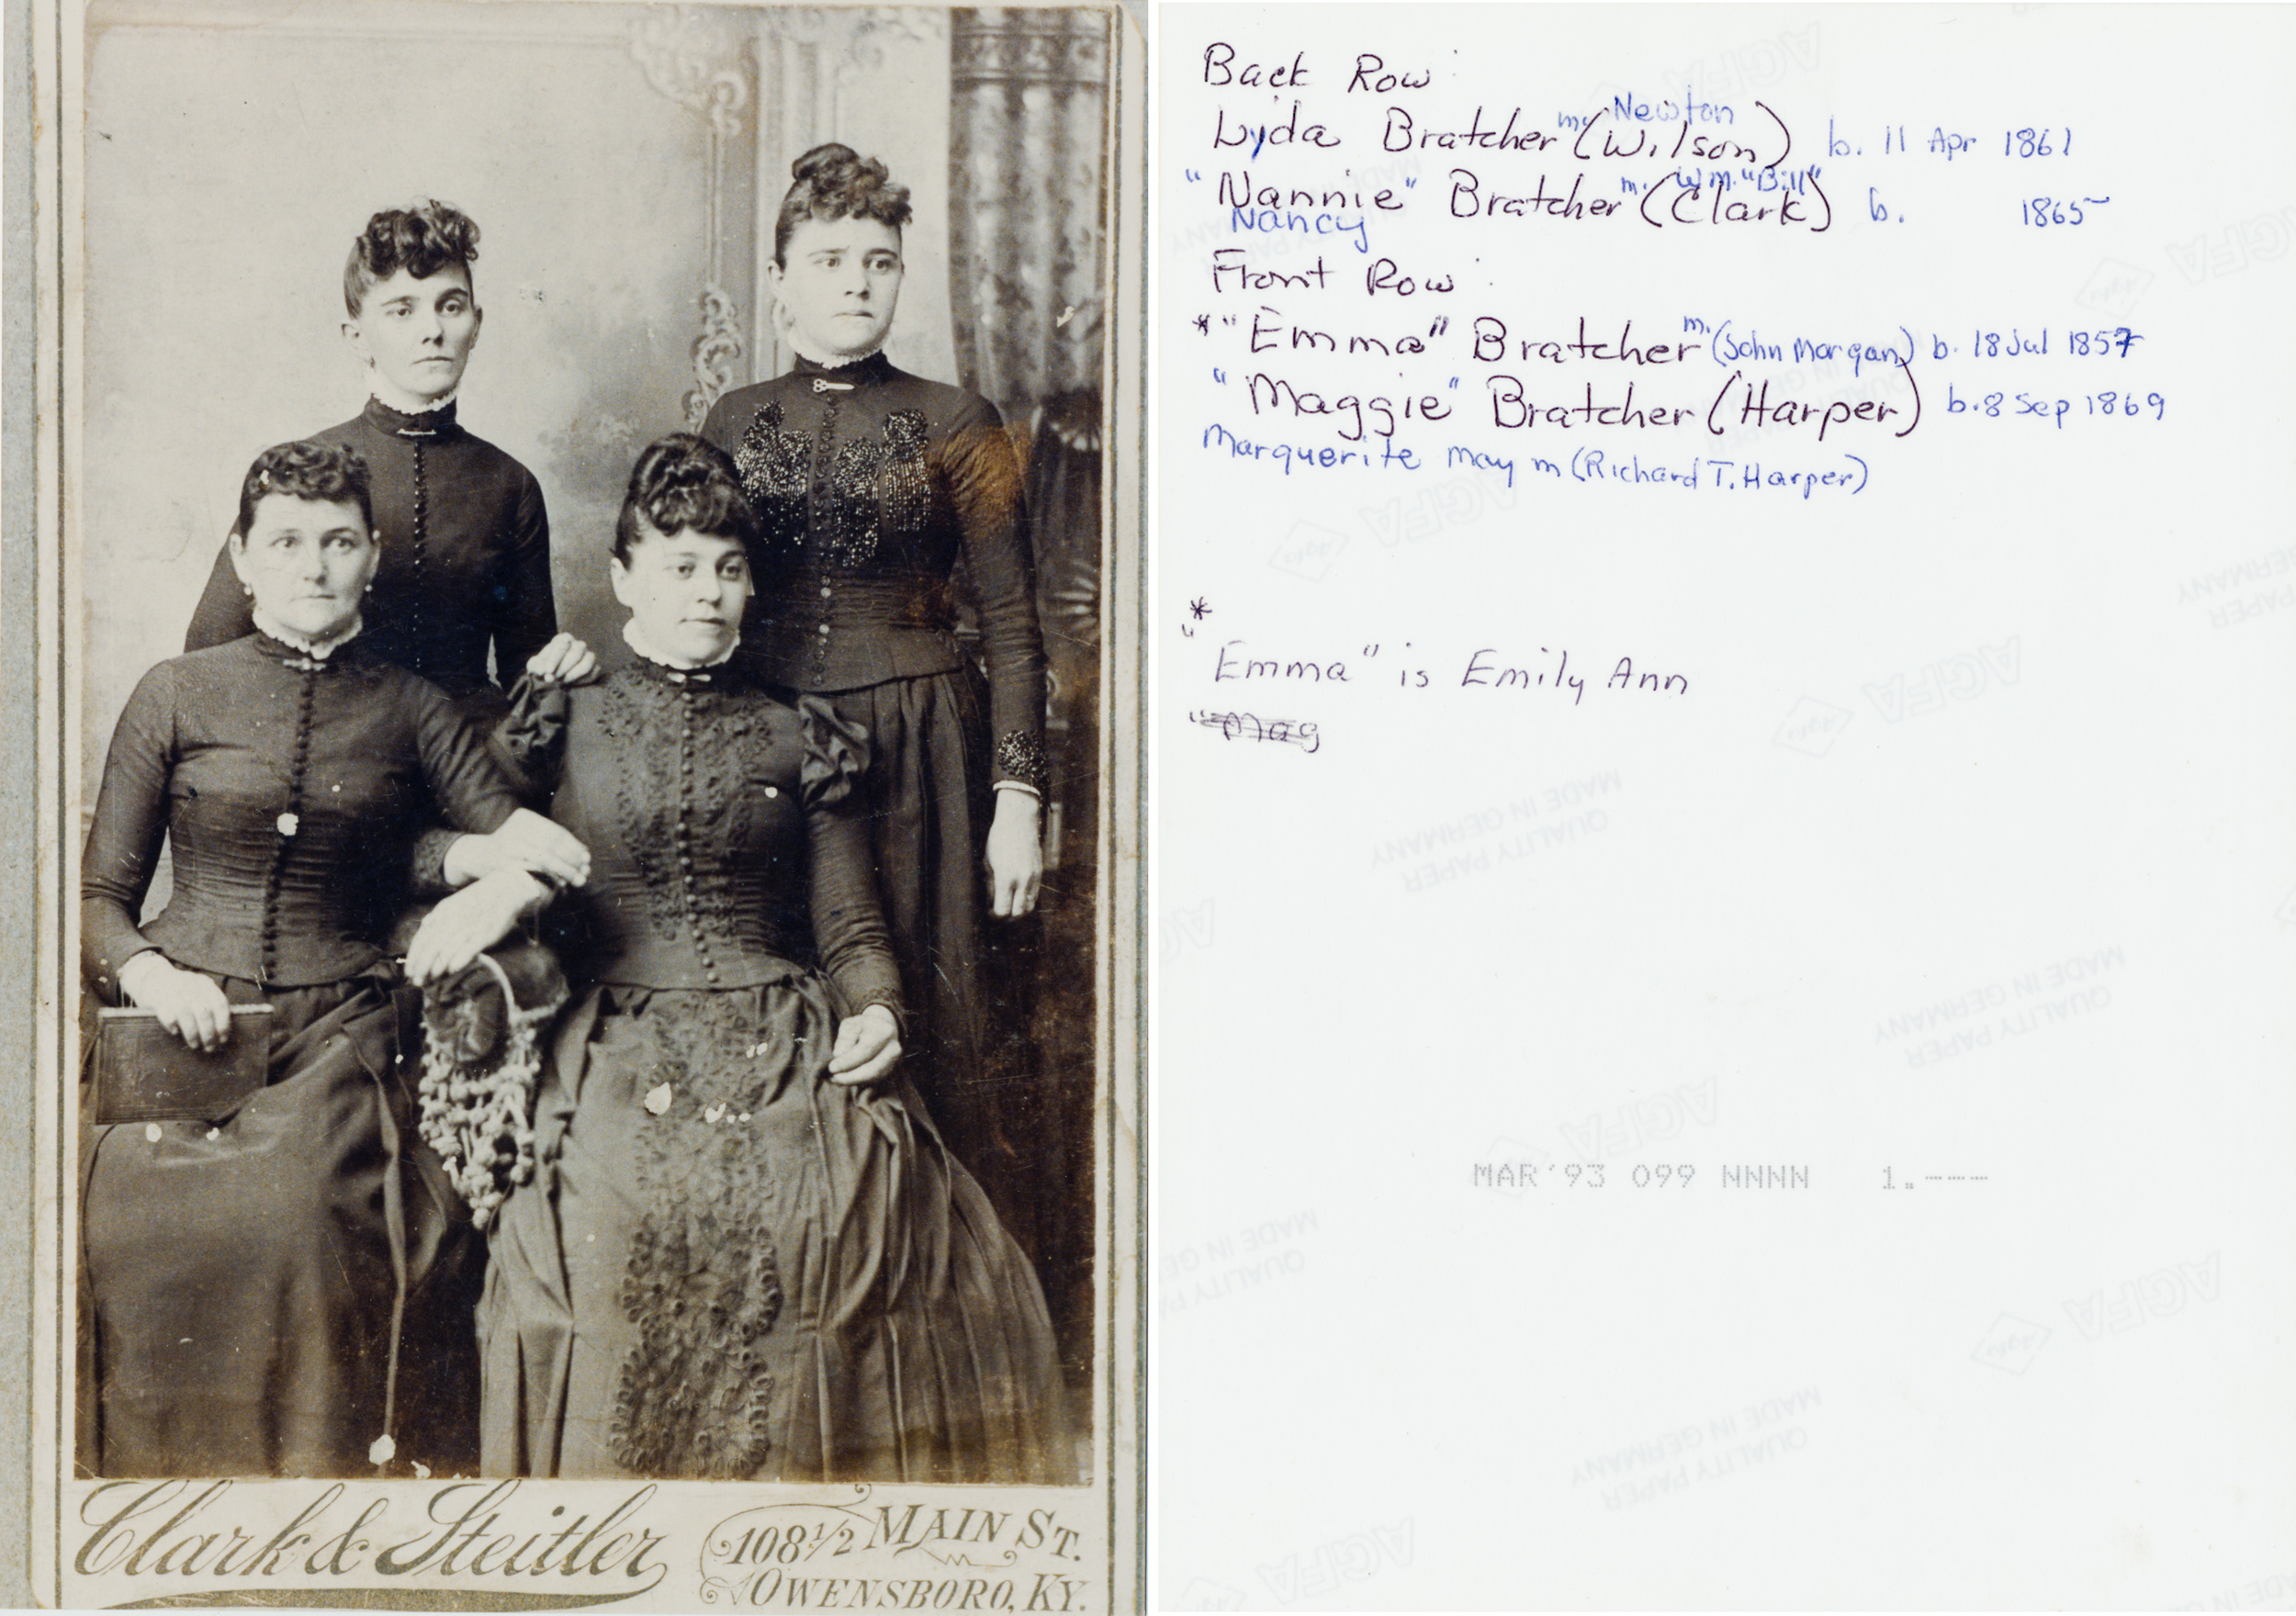 Clark & Steitler
108 1/2 MAIN ST.
OWENSBORO, KY.
Back Row
Lyda Bratcher m. Newton (Wilson) b. 11 Apr 1861
"Nannie" Bratcher m. Wm. "Bill" (Clark) b. 1865
Nancy
Front Row
* "Emma" Bratcher m. (John Morgan) b. 18 Jul 1857
"Maggie" Bratcher (Harper) b. 8 Sep 1869
Marguerite May m (Richard T. Harper)
*
"Emma" is Emily Ann
"Mag
MAR '93 099 NNNN 1.---
AGFA
QUALITY PAPER
MADE IN GERMANY